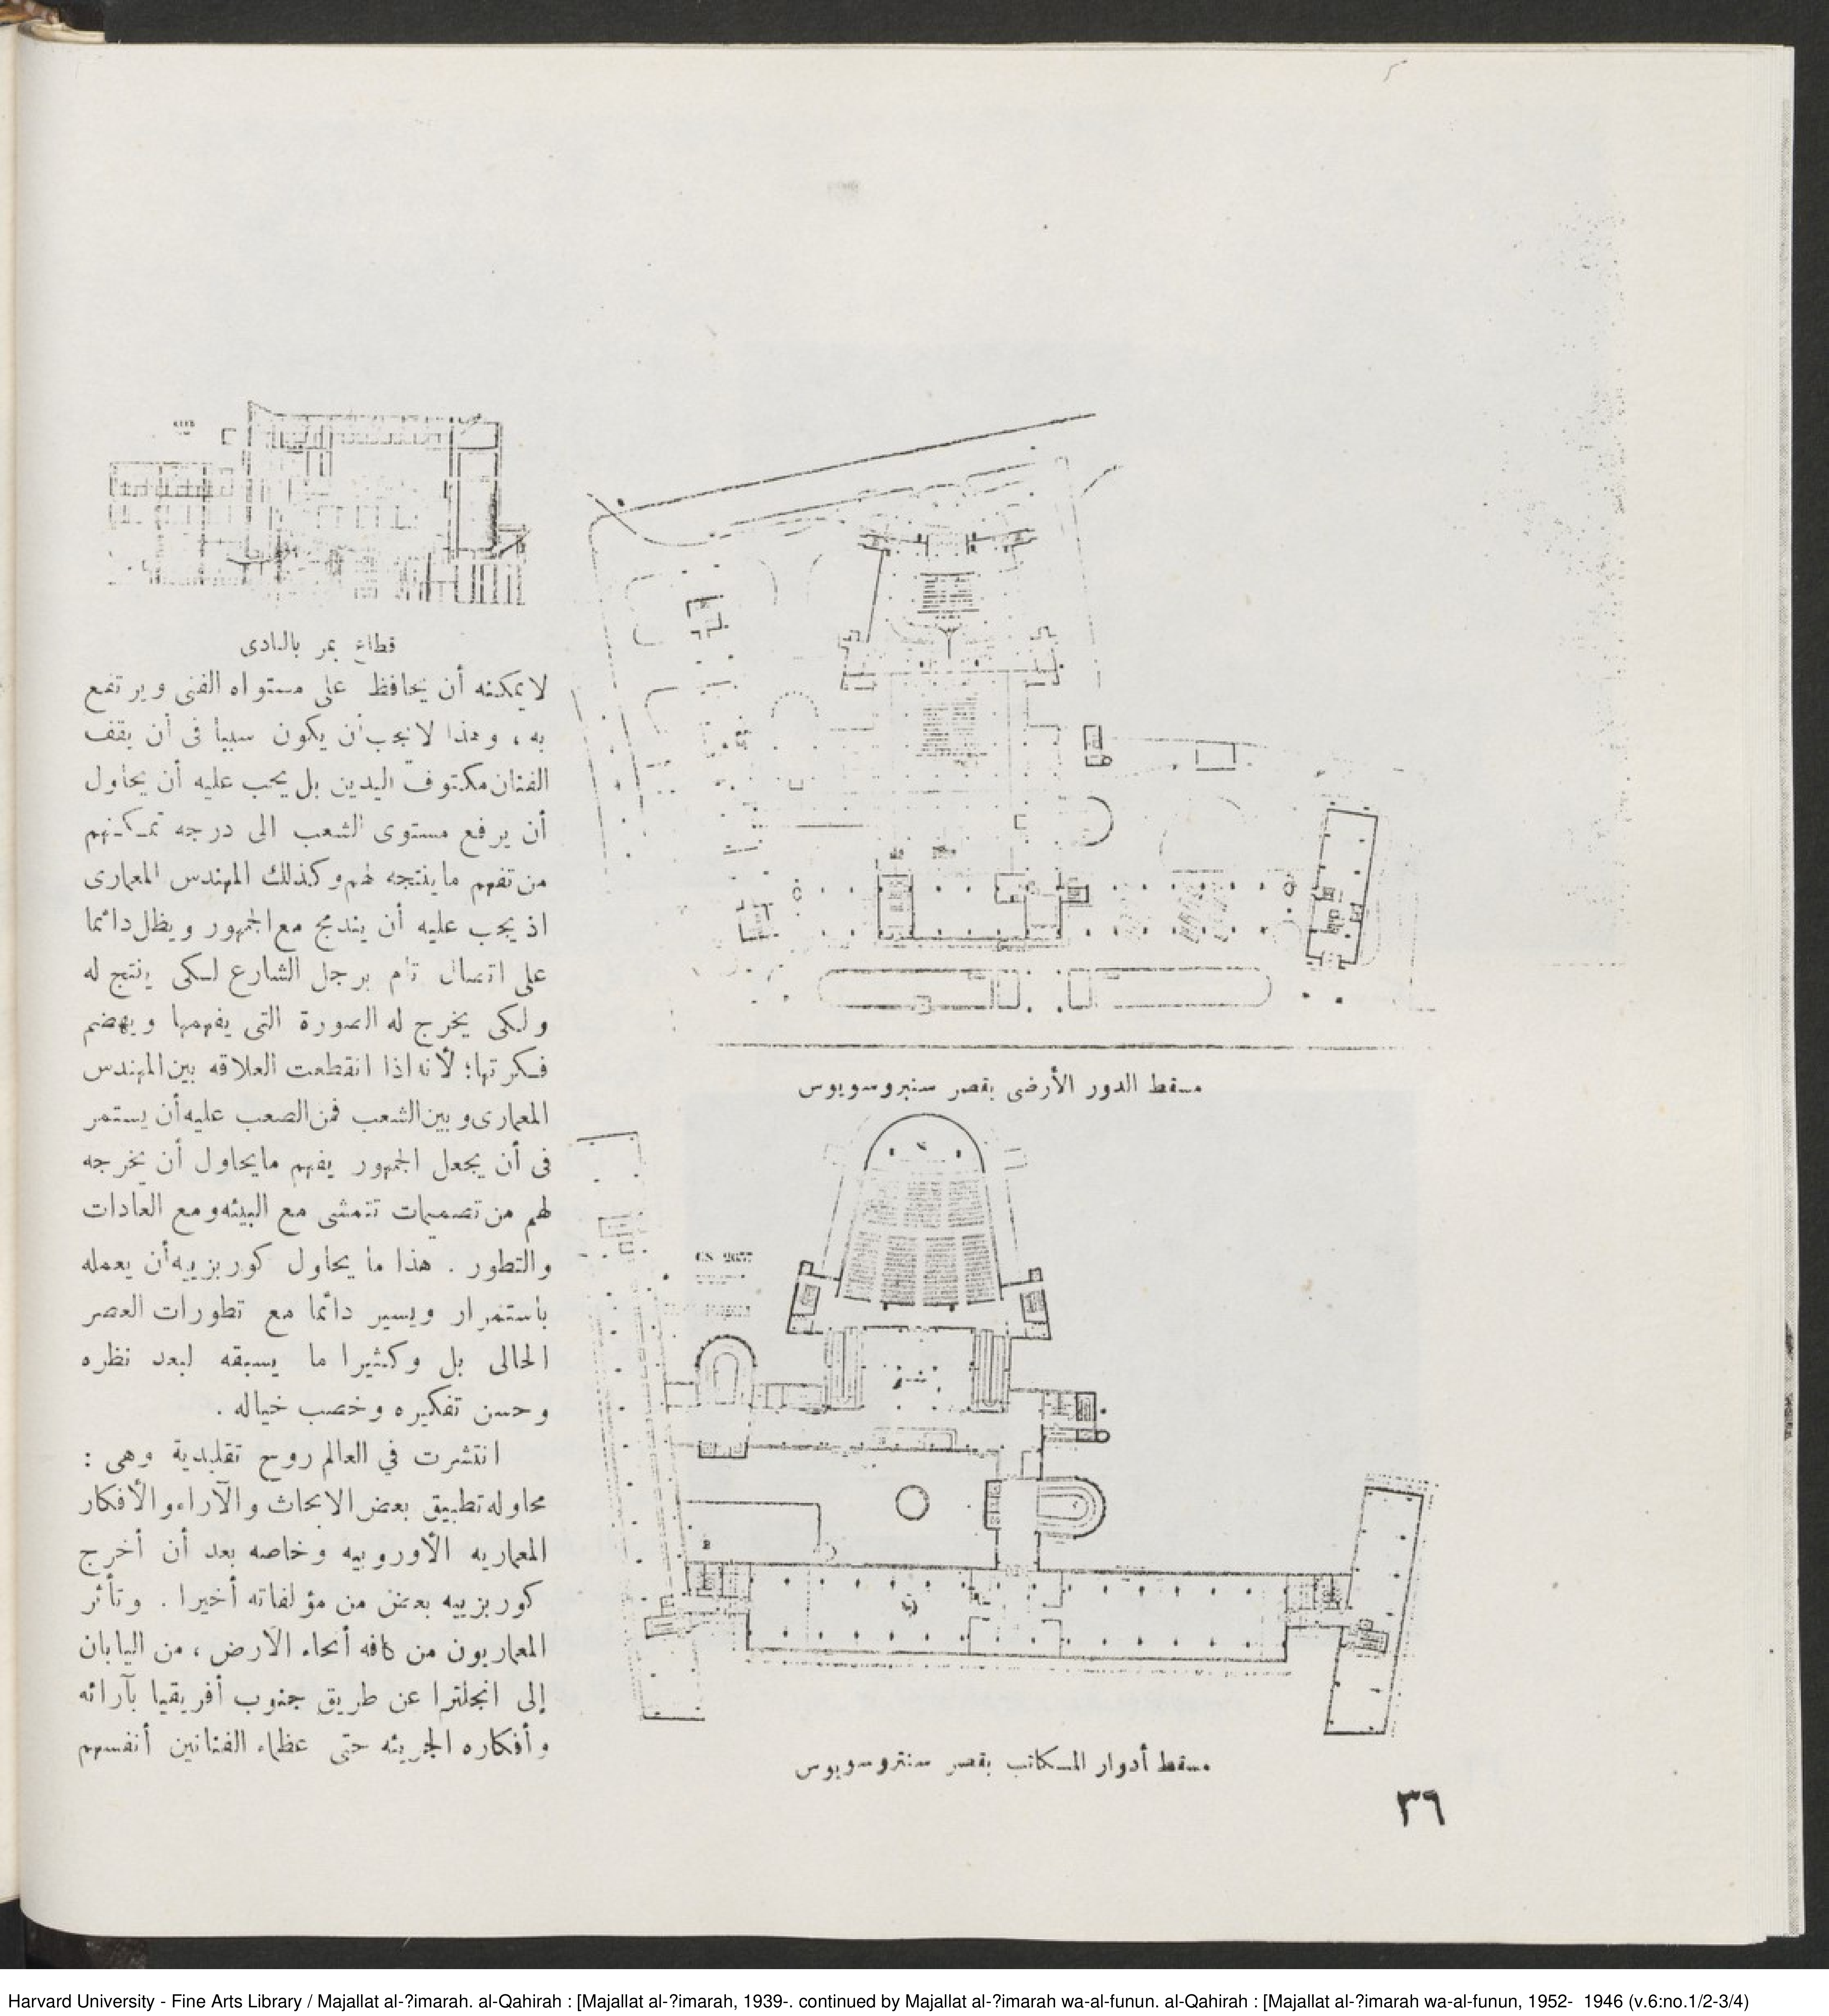 قطاع يمر بالنادى
لا يمكنه أن يحافظ على مستواه الفنى ويرتفع
به ، وهذا لا يجب أن يكون سببا فى أن يقف
الفنان مكتوف اليدين بل يجب عليه أن يحاول
أن يرفع مستوى الشعب الى درجه تمكنهم
من تفهم ما ينتجه لهم وكذلك المهندس المعمارى
اذ يجب عليه أن يندمج مع الجمهور ويظل دائما
على اتصال تام برجل الشارع لكى ينتج له
ولكى يخرج له الصورة التى يفهمها ويهضم
فكرتها؛ لأنه اذا انقطعت العلاقه بين المهندس
المعمارى وبين الشعب فمن الصعب عليه أن يستمر
فى أن يجعل الجمهور يفهم ما يحاول أن يخرجه
لهم من تصميمات تتمشى مع البيئه ومع العادات
والتطور . هذا ما يحاول كوربزييه أن يعمله
باستمرار ويسير دائما مع تطورات العصر
الحالى بل وكثيرا ما يسبقه لبعد نظره
وحسن تفكيره وخصب خياله .
انتشرت في العالم روح تقليدية وهى :
محاوله تطبيق بعض الابحاث والآراء والأفكار
المعماريه الأوروبيه وخاصه بعد أن أخرج
كوربزييه بعض من مؤلفاته أخيرا . وتأثر
المعماريون من كافه أنحاء الارض ، من اليابان
إلى انجلترا عن طريق جنوب أفريقيا بآرائه
وأفكاره الجريئه حتى عظماء الفنانين أنفسهم
مسقط الدور الأرضى بقصر سنتروسويوس
CS 2677
مسقط أدوار المكاتب بقصر سنتروسويوس
٣٦
Harvard University - Fine Arts Library / Majallat al-?imarah. al-Qahirah : [Majallat al-?imarah, 1939-. continued by Majallat al-?imarah wa-al-funun. al-Qahirah : [Majallat al-?imarah wa-al-funun, 1952- 1946 (v.6:no.1/2-3/4)